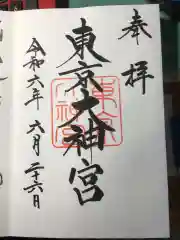 奉拝
東京大神宮
令和六年 六月二十六日